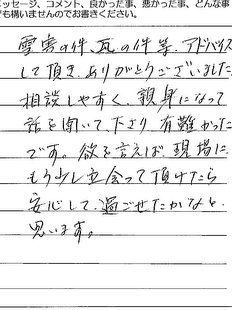 ッセージ、コメント、良かった事、悪かった事、どんな事
でも構いませんのでお書きください。
雪害の件、瓦の件等、アドバイス
して頂き、ありがとうございました。
相談しやすく、親身になって
話を聞いて、下さり有難かった
です。欲を言えば、現場に、
もう少し立会って頂けたら
安心して、過ごせたかなと
思います。